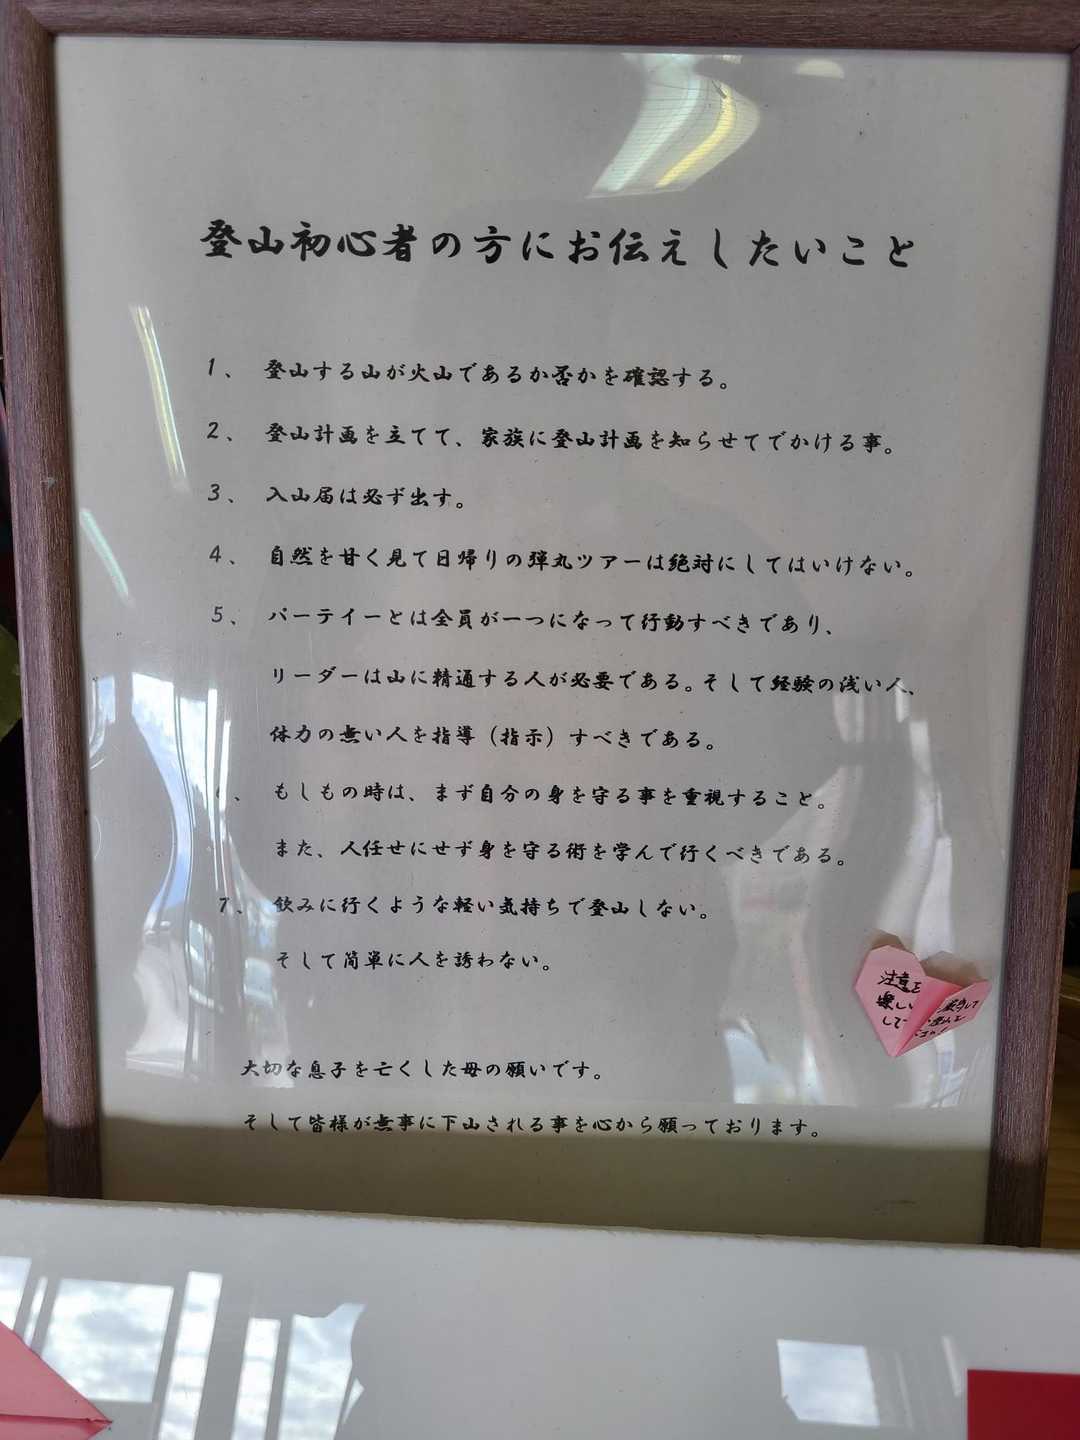 登山初心者の方にお伝えしたいこと
1、 登山する山が火山であるか否かを確認する。
2、 登山計画を立てて、家族に登山計画を知らせてでかける事。
3、 入山届は必ず出す。
4、 自然を甘く見て日帰りの弾丸ツアーは絶対にしてはいけない。
5、 パーテイーとは全員が一つになって行動すべきであり、
リーダーは山に精通する人が必要である。そして経験の浅い人、
体力の無い人を指導（指示）すべきである。
6、 もしもの時は、まず自分の身を守る事を重視すること。
また、人任せにせず身を守る術を学んで行くべきである。
7、 飲みに行くような軽い気持ちで登山しない。
そして简単に人を誘わない。
大切な息子を亡くした母の願いです。
そして皆様が無事に下山される事を心から願っております。
注意を
楽しい
して